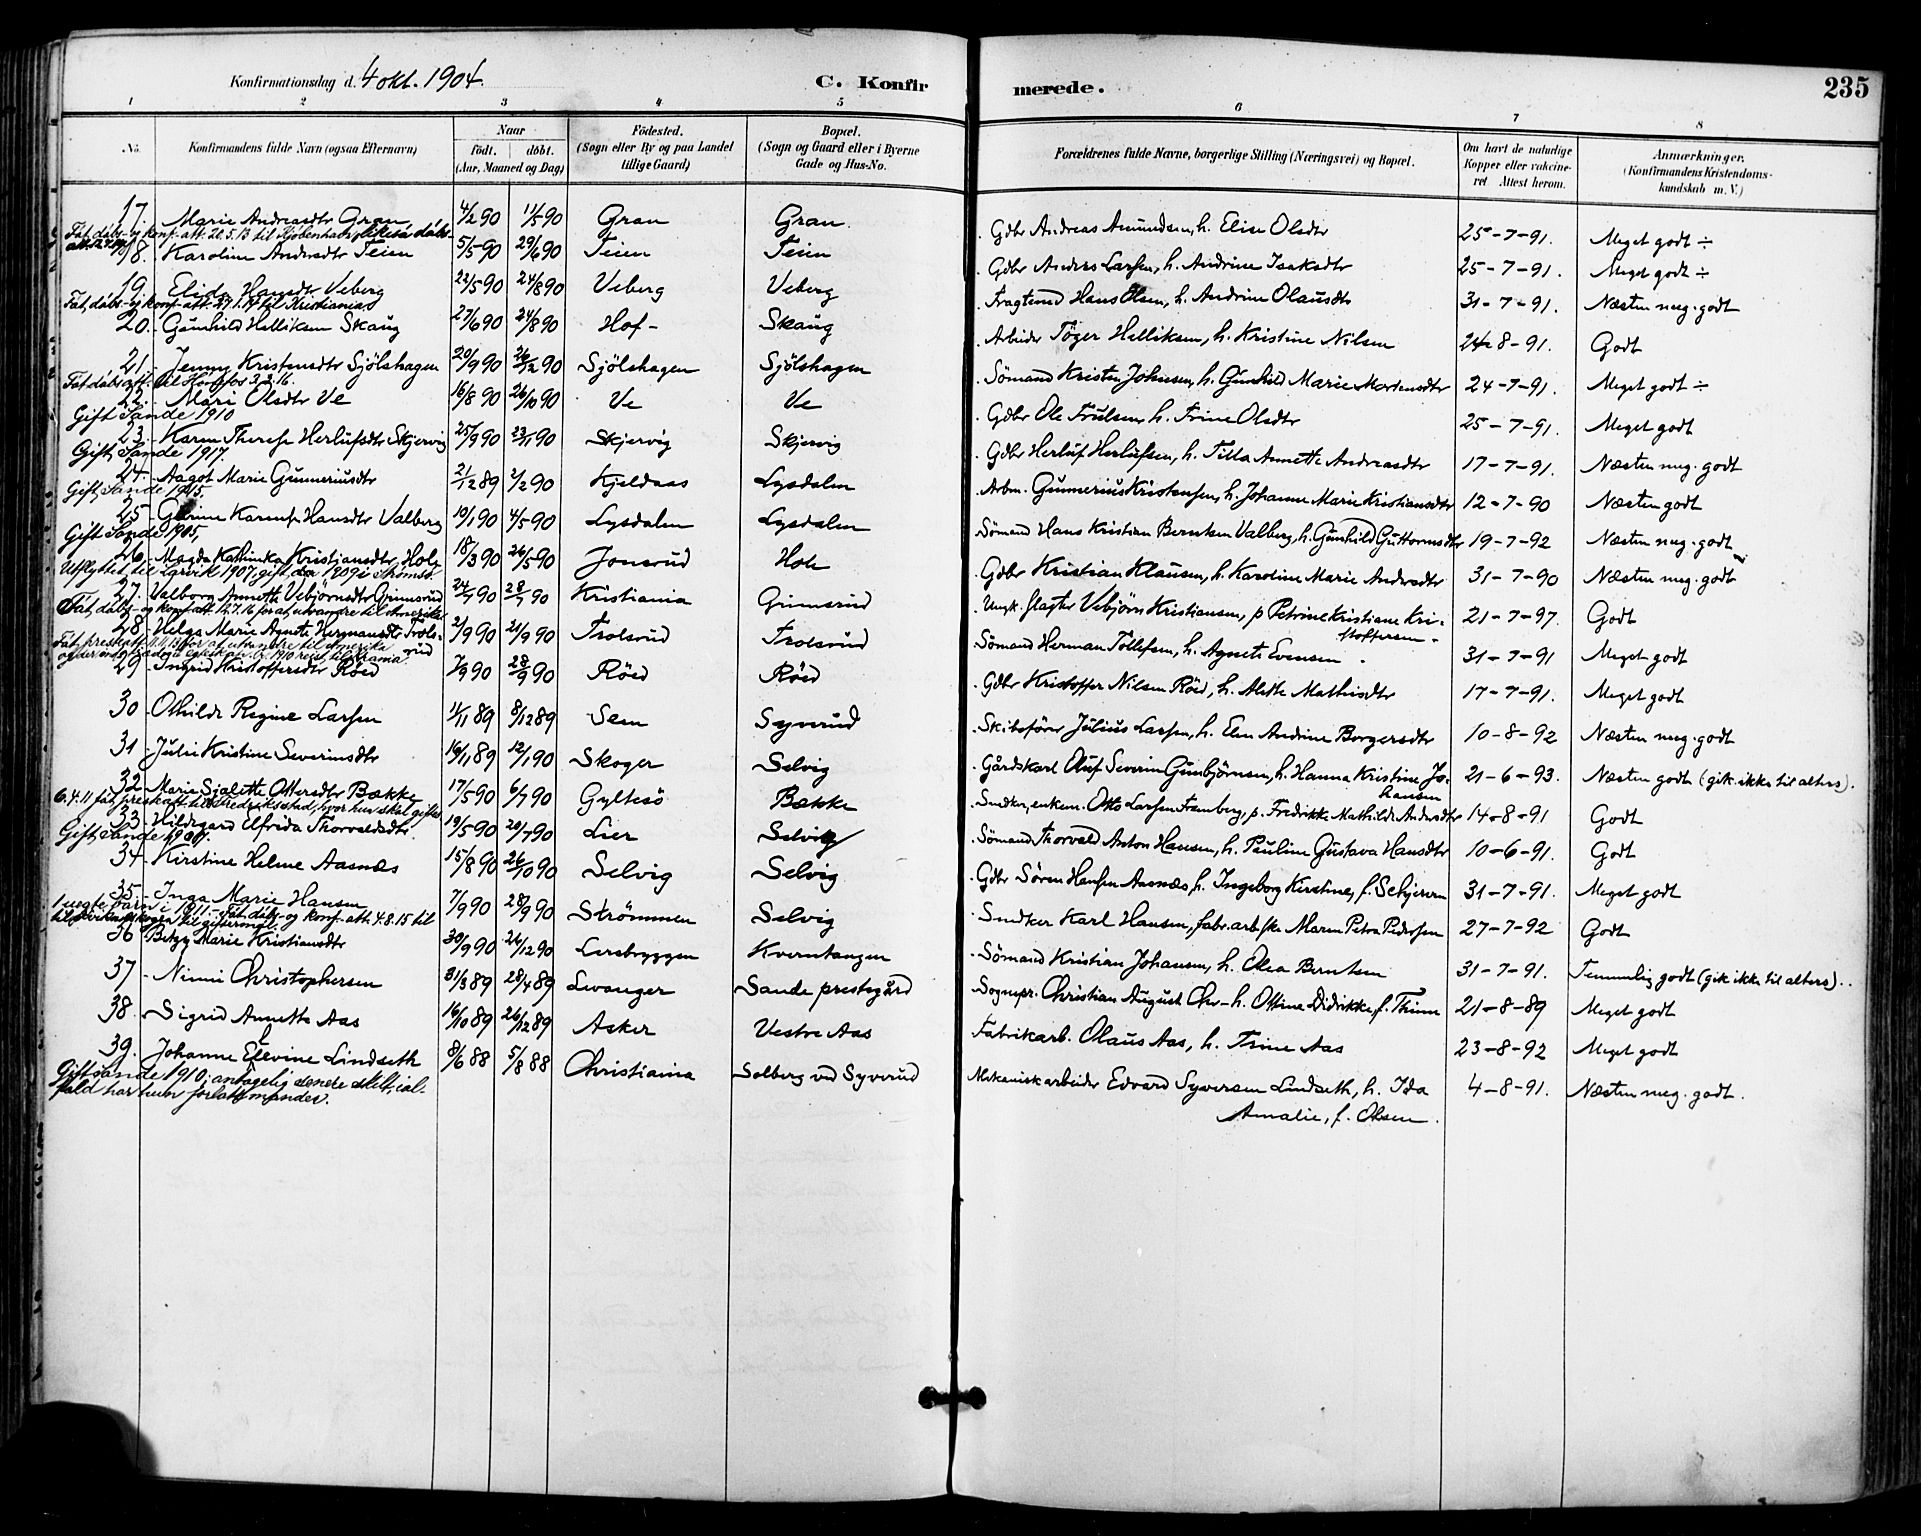 Konfirmationsdag d. 4 okt. 1904.
C. Konfirmerede.
235
1 2 3 4 5 6 7 8
No.
Konfirmandens fulde Navn (ogsaa Efternavn)
Naar
født. døbt.
(Aar, Maaned og Dag)
Födested.
(Sogn eller By og paa Landet
tillige Gaard)
Bopæl.
(Sogn og Gaard eller i Byerne
Gade og Hus-No.
Forældrenes fulde Navne, borgerlige Stilling (Næringsvei) og Bopæl.
Om havt de naturlige
Kopper eller vakcine-
ret Attest herom.
Anmærkninger.
(Konfirmandens Kristendoms-
kundskab m. V.)
17. Marie Andreasdtr Gran 4/2 90 11/5 90 Gran Gran. Gdbr Andreas Amundsen, h. Elise Olsdtr 25-7-91. Meget godt ÷
Fåt dåbs- og konf. att. 20.5.13 til Kjøbenhavn, likeså dåbs-
att. 12.7.19
18. Karoline Andersdtr Teien 5/5-90 29/6 90 Teien Teien Gdbr Anders Larsen, h. Andrine Isaksdtr 25-7-91. Meget godt ÷
19. Elida Hansdtr Veberg 22/5-90 24/8 90 Veberg Veberg Fragtemd Hans Olsen, h. Andrine Olausdtr 31-7-91. Næsten meg. godt
Fåt, dåbs- og konf. att. til Kristiania
20. Gunhild Helliksen Skaug 27/6 90 24/8 90 Hof- Skaug Arbeider Töger Helliksen, h. Kristine Nilsen 24-8-91. Godt
21. Jenny Kristensdtr Sjölshagen 20/9 90 26/12 90 Sjölshagen Sjölshagen Sömand Kristen Johnsen, h. Gunhild Marie Mortensdtr 24-7-91. Meget godt ÷
Fåt dåbs att. til Hønefos 3.2.16.
22. Mari Olsdtr Ve 16/8 90 26/10 90 Ve Ve Gdbr Ole Trulsen, h. Trine Olsdtr 25-7-91. Meget godt
Gift Sande 1910
23. Karen Therese Herlufsdtr Skjervig 25/9 90 23/11 90 Skjervig Skjervig Gdbr Herluf Herlufsen, h. Tilla Annette Andreasdtr 17-7-91. Næsten meg. godt
Gift, Sande 1917.
24. Aagot Marie Gunneriusdtr 2/12 89 2/2 90 Kjeldaas Lysdalen Arbm. Gunnerius Kristensen, h. Johanne Marie Kristiansdtr 12-7-90 Næsten godt
Gift, Sande 1915.
25. Gurine Karense Hansdtr Valberg 10/1 90 4/5 90 Lysdalen Lysdalen Sömand Hans Kristian Berntsen Valberg, h. Gunhild Guttormsdtr 19-7-92 Næsten meg. godt
Gift Sande 1905,
26. Magda Kathinka Kristiansdtr Holt 18/3 90 26/5-90 Jonsrud Holt Gdbr Kristian Klausen, h. Karoline Marie Andersdtr 31-7-90 Næsten meg. godt
Utflyttet til Larvik 1907, gift da 1909 i Strömsö.
27. Valborg Annette Vebjörnsdtr Grimsrud 24/4 90 28/7 90 Kristiania Grimsrud Ungk. slagter Vebjörn Kristiansen, p Petrine Kristiane Kri-
stoffersen - 21-7-97. Godt
Fåt, dåbs- og konf. att. 12.7.16 for at utvandre til Amerika
28. Helga Marie Agnete Hermansdtr Trols-
rud 2/9 90 21/9 90 Trolsrud Trolsrud Sömand Herman Tollefsen, h. Agnete Evensen 31-7-91 Meget godt
29 Ingrid Kristoffersdtr Röed 7/9 90 28/9 90 Röed Röed Gdbr Kristoffer Nilsen Röed, h. Alette Mathisdtr 17-7-91. Meget godt
30 Othilde Regine Larsen 11/11 89 8/12 89 Sem Syverud Skibsförer Julius Larsen, h. Elen Andrine Borgersdtr 10-8-92 Næsten meg. godt
31 Julie Kristine Severinsdtr 16/11 89 12/1 90 Skoger Selvig Gårdskarl Oluf Severin Gunbjörnsen, h. Hanna Kristine Jo-
hansen 21-6-93. Næsten godt (gik ikke til alters).
32 Marie Sjalette Ottersdtr Bække 17/5 90 6/7 90 Gyltesö Bække Sndker, enkem. Otto Larsen Framberg, p. Fredrikke Mathilde Andersdtr 14-8-91 Godt
6.4.11 fåt preskatt. til Fredriksstad, hvor hun skal giftes
33. Hildegard Elfrida Thorvaldsdtr. 19/5 90 20/7 90 Lier Selvig Sömand Thorvald Anton Hansen, h. Pauline Gustava Hansdtr 10-6-91. Godt
Gift, Sande 1900.
34. Kirstine Helene Aasnæs 15/8 90 26/10 90 Selvig Selvig Gdbr Sören Hansen Aasnæs, h. Ingeborg Kirstine, f. Schjerven 31-7-91. Meget godt
35. Inga Marie Hansen 7/9 90 28/9 90 Strömmen Selvig Snedker Karl Hansen, fabr.arb.ske Maren Petra Pedersen 27-7-92 Godt
1 uægte barn i 1911.- Fåt dåbs- og konf. att. 4.8.15 til
36 Betzy Marie Kristiansdtr 30/9 90 26/12 90 Lersbryggen Kverntangen Sömand Kristian Johansen, h. Olea Berntsen 31-7-91. Temmelig godt (gik ikke til alters).
37 Ninni Christophersen 31/3 89 28/4 89 Levanger Sande prestegård Sognepr. Christian August Chr- h. Ottine Didrikke, f. Thinn 21-8-89 Meget godt
38. Sigrid Annette Aas 16/10 89 26/12 89 Asker Vestre Aas Fabrikarb. Olaus Aas, h. Trine Aas 23-8-92 Meget godt
39. Johanne Elevine Lindseth 8/6 88 5/8 88 Christiania Solberg ved Syverud Mekanisk arbeider Edvard Syversen Lindseth, h. Ida
Amalie, f. Olsen. 4-8-91. Næsten meg. godt.
Gift Sande 1910; antagelig senere skilt; ial-
fald har hun forlatt manden.